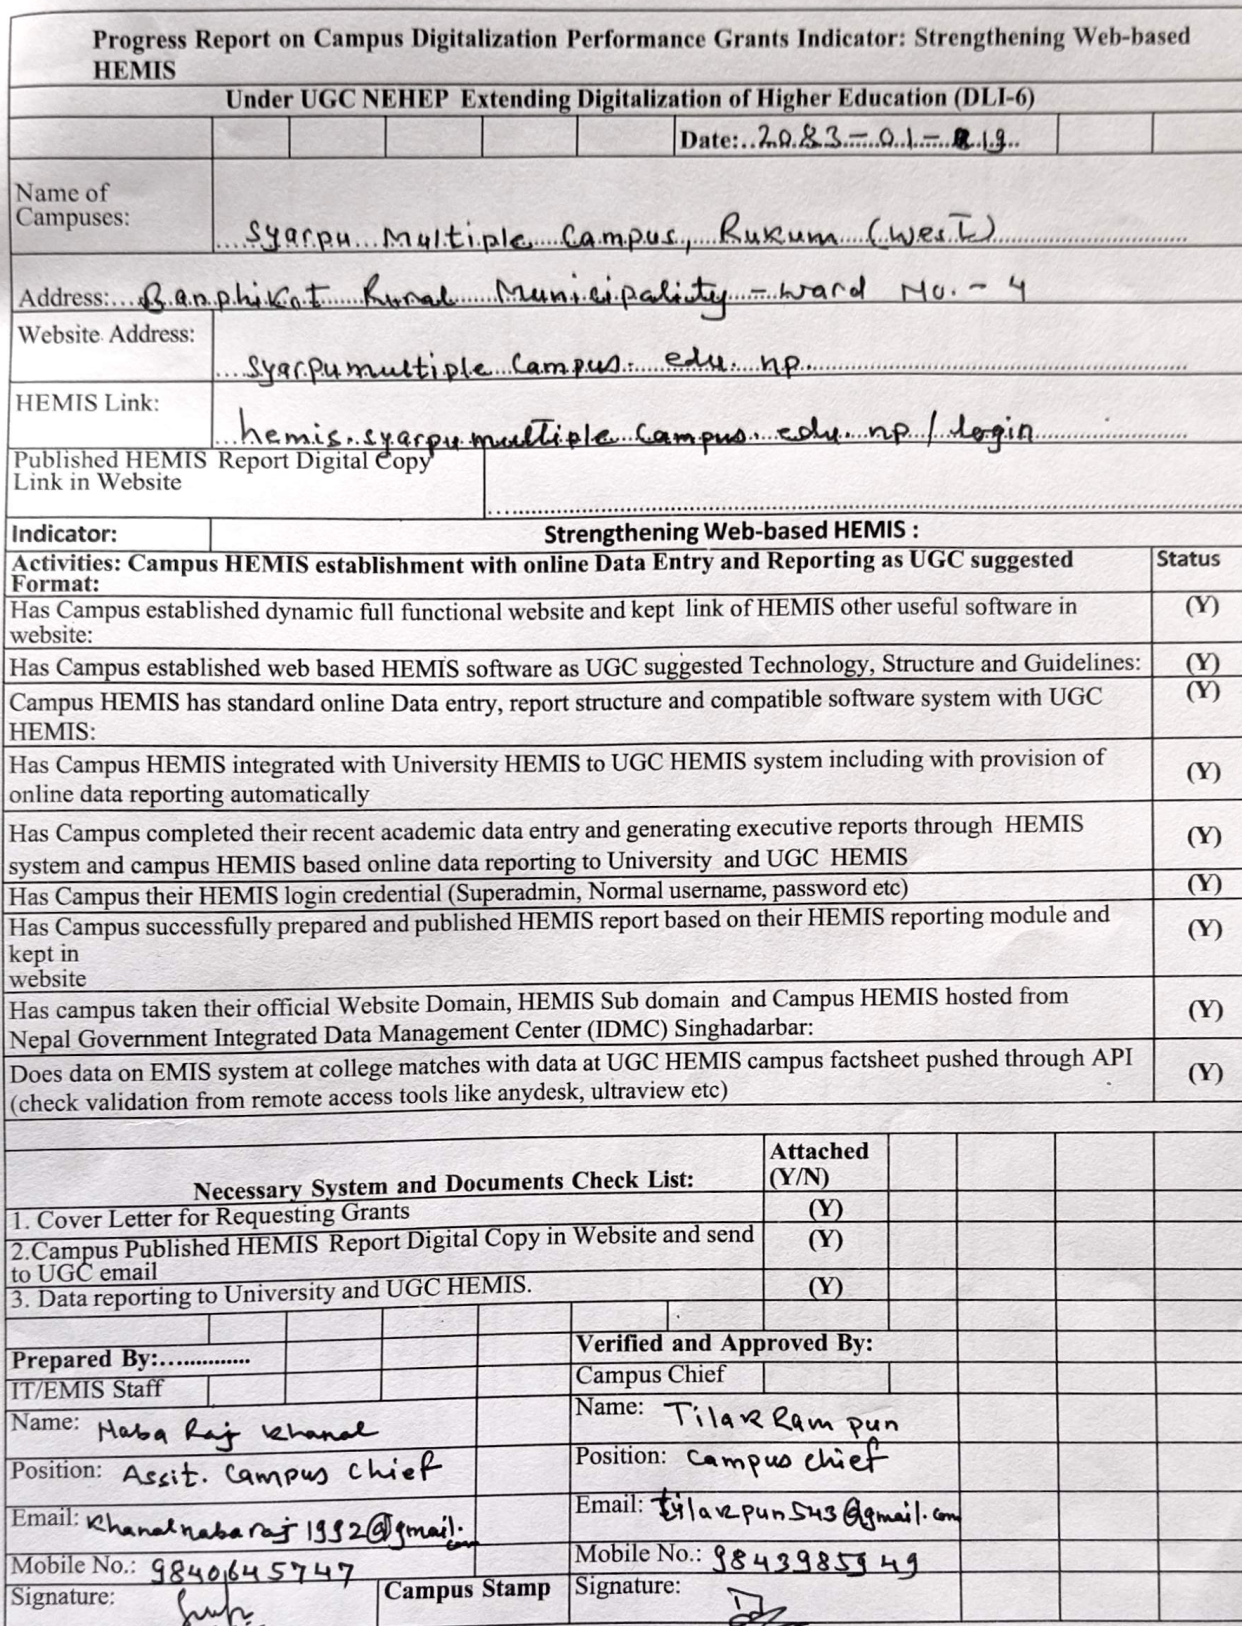 Progress Report on Campus Digitalization Performance Grants Indicator: Strengthening Web-based
HEMIS
Under UGC NEHEP Extending Digitalization of Higher Education (DLI-6)
Date:..2083-01-19
Name of
Campuses:
Syarpu Multiple Campus, Rukum (West)
Address:...Banphikot Rural Municipality - ward No. - 4
Website Address:
syarpumultiple campus. edu. np
HEMIS Link:
hemis.syarpumultiple campus. edu. np / login
Published HEMIS Report Digital Copy
Link in Website
Indicator: Strengthening Web-based HEMIS :
Activities: Campus HEMIS establishment with online Data Entry and Reporting as UGC suggested Status
Format:
Has Campus established dynamic full functional website and kept link of HEMIS other useful software in (Y)
website:
Has Campus established web based HEMIS software as UGC suggested Technology, Structure and Guidelines: (Y)
Campus HEMIS has standard online Data entry, report structure and compatible software system with UGC (Y)
HEMIS:
Has Campus HEMIS integrated with University HEMIS to UGC HEMIS system including with provision of (Y)
online data reporting automatically
Has Campus completed their recent academic data entry and generating executive reports through HEMIS (Y)
system and campus HEMIS based online data reporting to University and UGC HEMIS
Has Campus their HEMIS login credential (Superadmin, Normal username, password etc) (Y)
Has Campus successfully prepared and published HEMIS report based on their HEMIS reporting module and (Y)
kept in
website
Has campus taken their official Website Domain, HEMIS Sub domain and Campus HEMIS hosted from (Y)
Nepal Government Integrated Data Management Center (IDMC) Singhadarbar:
Does data on EMIS system at college matches with data at UGC HEMIS campus factsheet pushed through API (Y)
(check validation from remote access tools like anydesk, ultraview etc)
Attached
Necessary System and Documents Check List: (Y/N)
1. Cover Letter for Requesting Grants (Y)
2.Campus Published HEMIS Report Digital Copy in Website and send (Y)
to UGC email
3. Data reporting to University and UGC HEMIS. (Y)
Prepared By:.............. Verified and Approved By:
IT/EMIS Staff Campus Chief
Name: Naba Raj Khanal Name: Tilak Ram pun
Position: Assit. Campus Chief Position: Campus chief
Email: Khanalnabaraj1992@gmail.com Email: tilakpun543@gmail.com
Mobile No.: 9840645747 Mobile No.: 9843985949
Signature: Campus Stamp Signature: